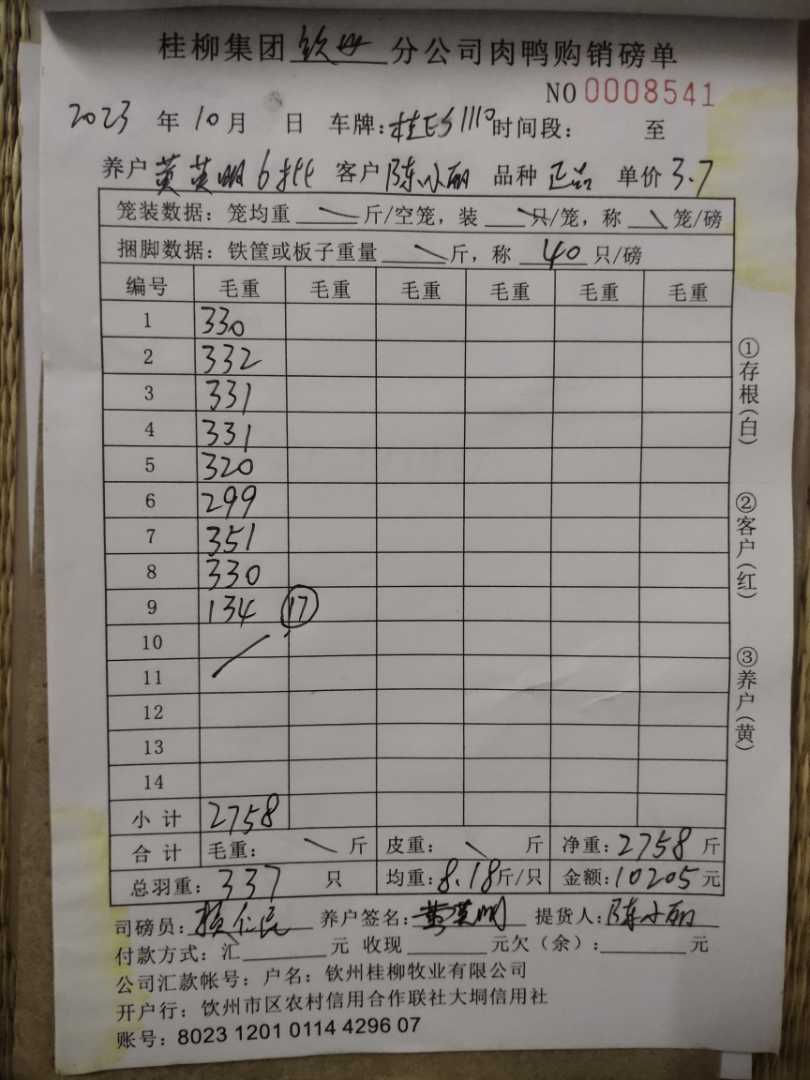 桂柳集团钦州分公司肉鸭购销磅单
NO 0008541
2023 年 10 月 日 车牌: 1110 时间段: 至
养户 黄英明 6批 客户 陈小丽 品种 正品 单价 3.7
笼装数据: 笼均重 \ 斤/空笼, 装 \ 只/笼, 称 \ 笼/磅
捆脚数据: 铁筐或板子重量 \ 斤, 称 40 只/磅
编号 毛重 毛重 毛重 毛重 毛重 毛重
1 330
2 332
3 331
4 331
5 320
6 299
7 351
8 330
9 134 17
10
11
12
13
14
小计 2758
合计 毛重: \ 斤 皮重: \ 斤 净重: 2758 斤
总羽重: 337 只 均重: 8.18 斤/只 金额: 10205 元
司磅员: 养户签名: 黄英明 提货人: 陈小丽
付款方式: 汇 元 收现 元欠(余): 元
公司汇款帐号: 户名: 钦州桂柳牧业有限公司
开户行: 钦州市区农村信用合作联社大垌信用社
账号: 8023 1201 0114 4296 07
①存根(白)
②客户(红)
③养户(黄)